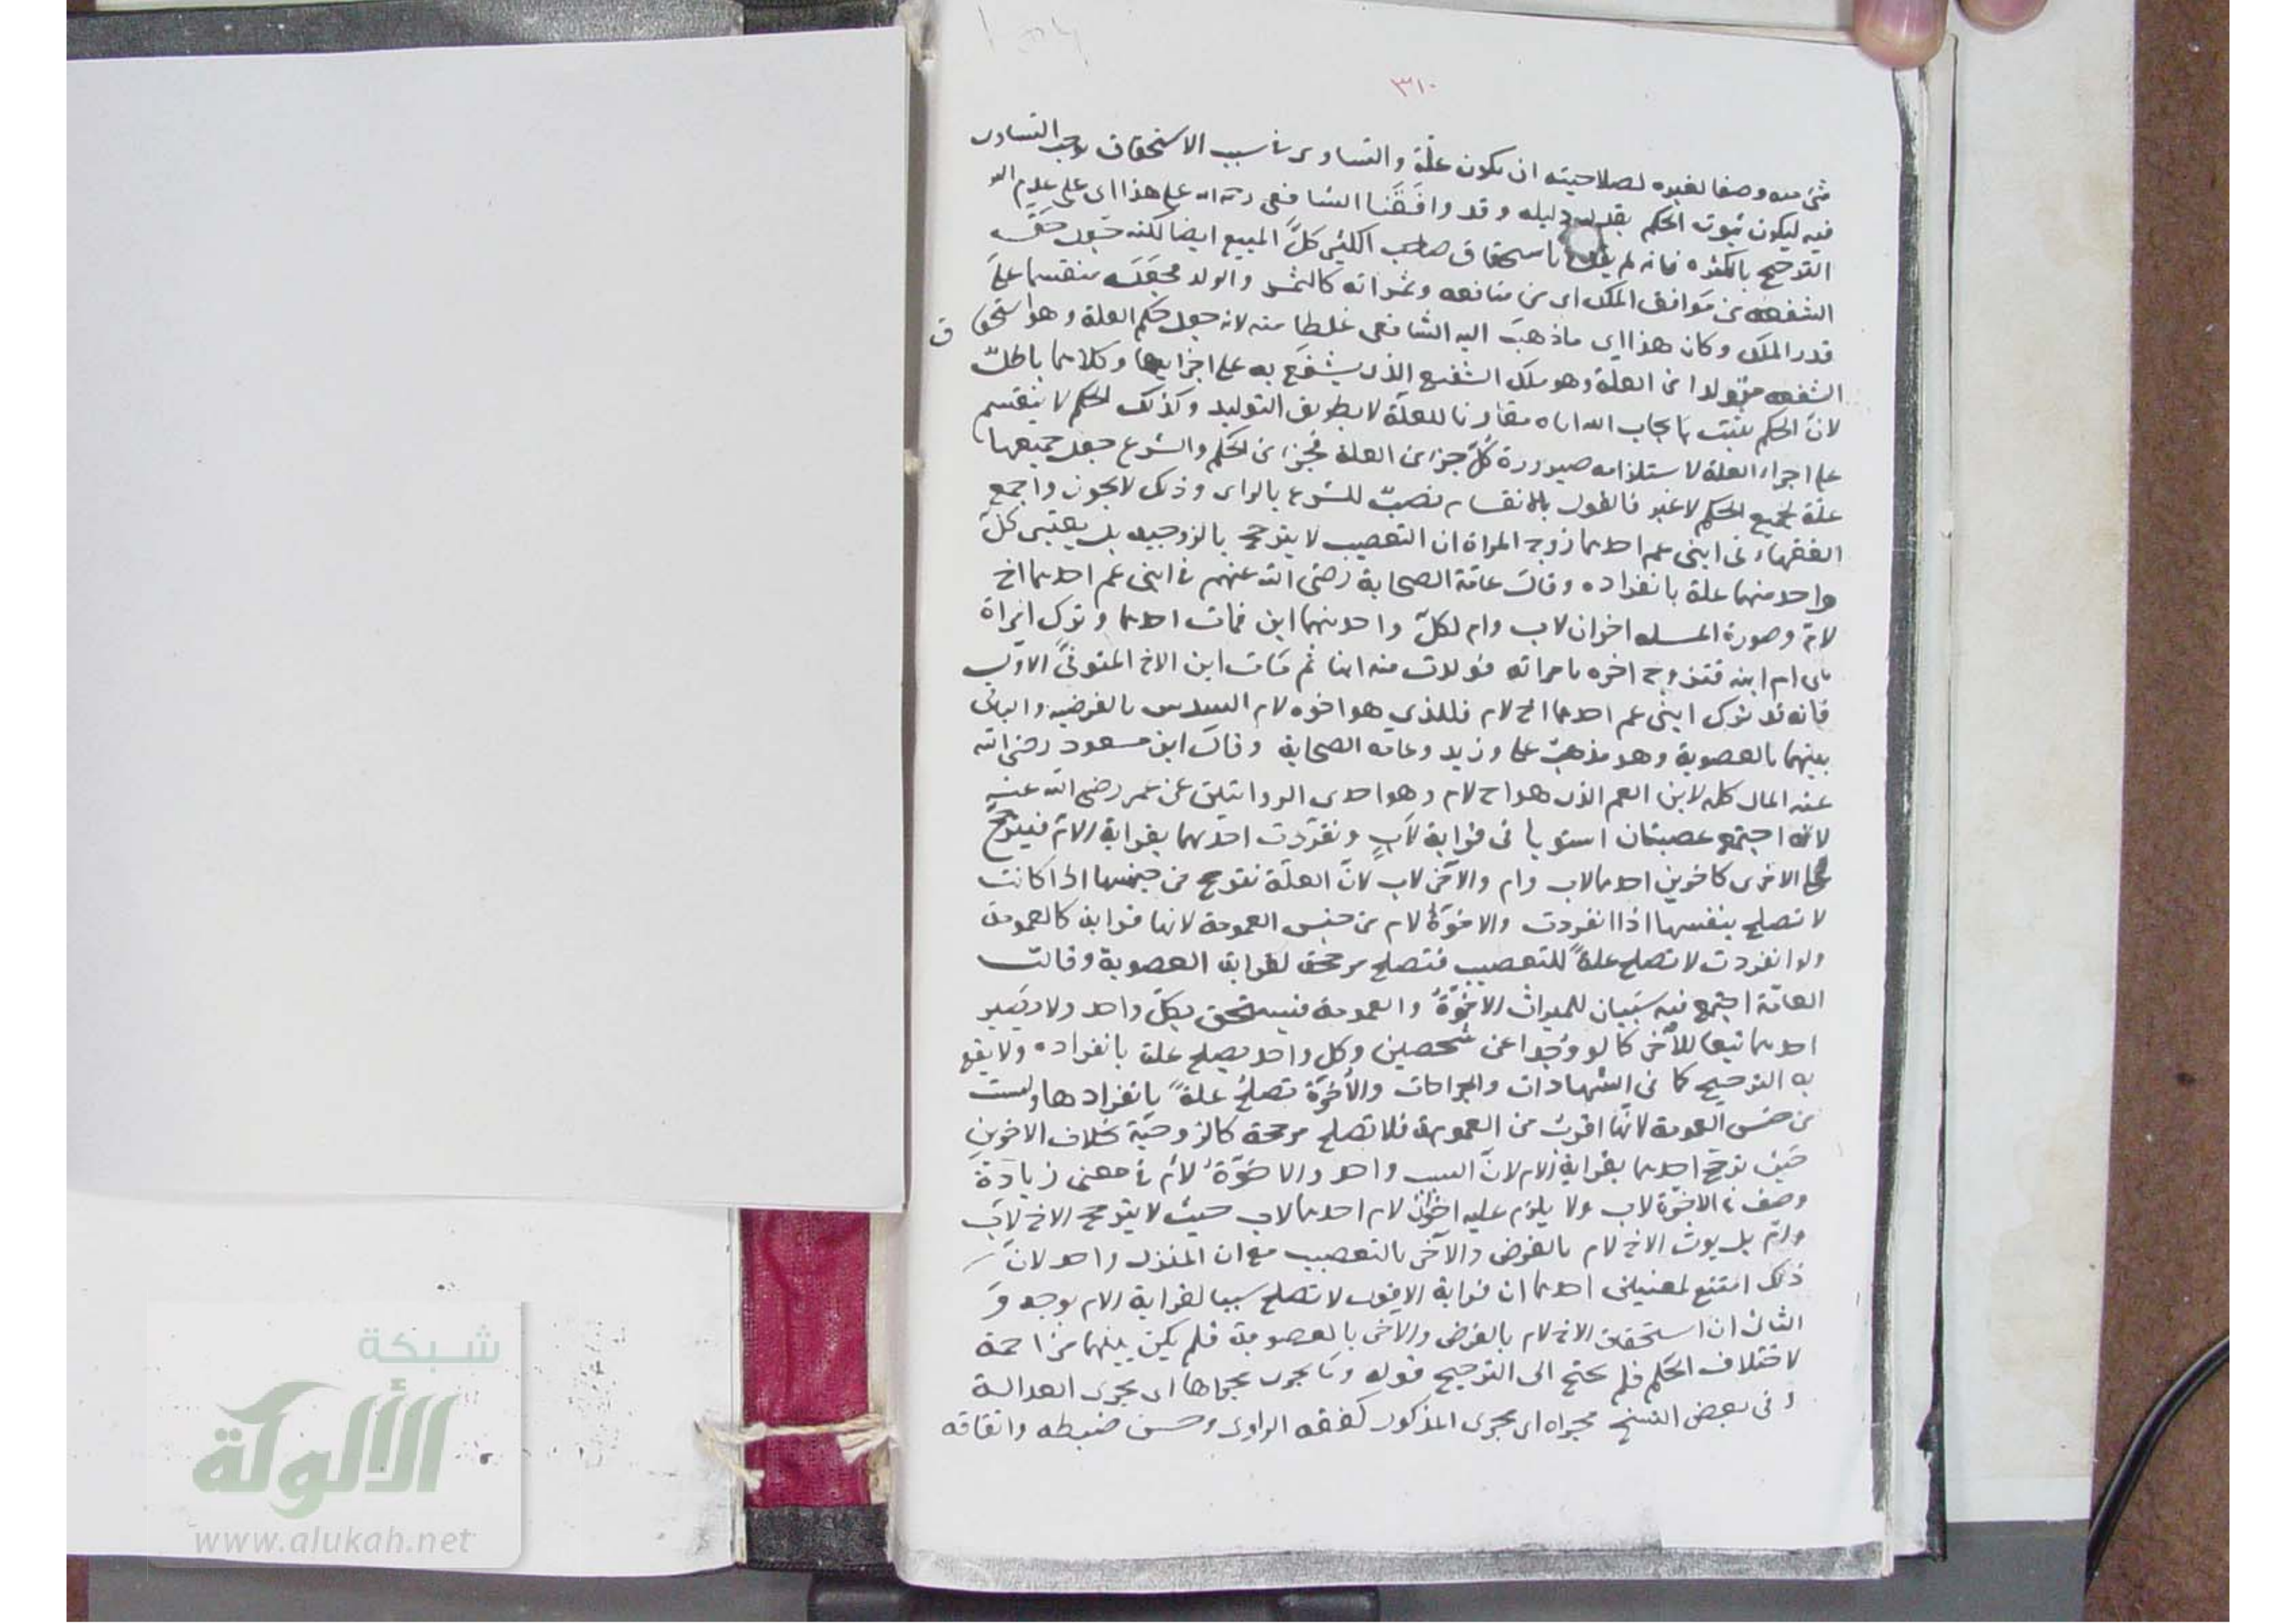 ٣١٠
شئ منه وصفا لغيره لصلاحيته ان يكون علّة والتساوى فى سبب الاستحقاق يوجب التساوى
فيه ليكون ثبوت الحكم بقدر دليله وقد وافَقَنا الشافعى رحمه الله على هذا اى على عدم
الترجيح بالكثرة فانه لم يقل باستحقاق صاحب الكثير كلَّ المبيع ايضا لكنه جعل حق
الشفعة من مَرافق الملك اى من منافعه وثمراته كالثمر والولد فجعَله منقسما على
قدر الملك وكان هذا اى ما ذهبَ اليه الشافعى غلطا منه لانه جعل حكم العلة وهو استحقاق
الشفعه متولدا من العلة وهو ملك الشفيع الذى يشفَع به على اجزايها وكلاهما باطلٌ
لانّ الحكم يثبت بايجاب الله اياه مقارنا للعلّة لا بطريق التوليد وكذلك الحكم لا ينقسم
على اجزاء العلة لاستلزامه صيرورة كلّ جزء من العلة بجزء من الحكم والشرع جعل جميعها
علة لجميع الحكم لا غير فالقول بالانقسام نصبٌ للشرع بالراى وذلك لا يجوز واجمع
الفقهاء فى ابنى عم احدهما زوج المراة ان التعصيب لا يترجح بالزوجيه بل يعتبر كلّ
واحد منهما علة بانفراده وقال عامّة الصحابة رضى الله عنهم فى ابنى عم احدهما اخ
لامّ وصورة المسله اخوان لاب وام لكلّ واحد منهما ابن فمات احدهما وترك امراة
هى ام ابنه فتزوج اخوه بامراته فولدت منه ابنا ثم مات ابن الاخ المتوفَّى الاوّل
فانه قد ترك ابنى عم احدهما اخ لام فللذي هو اخوه لام السدس بالفرضيه والباقى
بينهما بالعصوبة وهو مذهبُ على وزيد وعامه الصحابة وقال ابن مسعود رضى الله
عنه المال كله لابن العم الذى هو اخ لام وهو احدى الروايتين عن عمر رضى الله عنه
لانه اجتمع عصبتان استويا فى قرابة لابٍ وتفرّدت احدهما بقرابة الامّ فيترجح
على الاخرى كاخوين احدهما لاب وام والآخر لاب لانّ العلّة تترجح من جنسها اذا كانت
لا تصلح بنفسها اذا انفردت والاخوّة لام من جنس العمومة لانها قرابة كالعمومة
ولو انفردت لا تصلح علةً للتعصيب فتصلح مرجحة لقرابة العصوبة وقالت
العامّة اجتمع فيه سَببان للميراث الاخوّةُ والعمومة فيستحق بكلّ واحد ولا يصير
احدهما تبعا للآخر كما لو وُجدا عن شخصين وكل واحد يصلح علة بانفراده ولا يقع
به الترجيح كما فى الشهادات والجراحات والاُخوّة تصلح علةً بانفرادها وليست
من جنس العمومة لانّها اقربُ من العمومة فلا تصلح مرجحة كالزوجيّة بخلاف الاخوين
حَيثُ ترجح احدهما بقرابة الام لانّ السبب واحد والاخوّةُ لامّ فى معنى زيادة
وصف فى الاخوّة لاب ولا يلزم عليه اخوانُ لام احدهما لاب حيث لا يترجح الاخ لاَب
وامّ بل يرث الاخ لام بالفرض والآخر بالتعصيب مع ان المنزل واحد لانَّ
ذلك امتنع لمعنيين احدهما ان قرابة الاخوة لا تصلح سببا لقرابة الام بوجه وَ
الثانى ان استحقاق الاخ لام بالفرض والآخر بالعصوبة فلم يكن بينهما مزاحمة
لاختلاف الحكم فلم يحتج الى الترجيح قوله وما يجرى مجراها اى مجرى العدالة
وفى بعض النسخ مجراه اى مجرى المذكور كفقه الراوى وحسن ضبطه واتقانه
شبكة
الألوكة
www.alukah.net